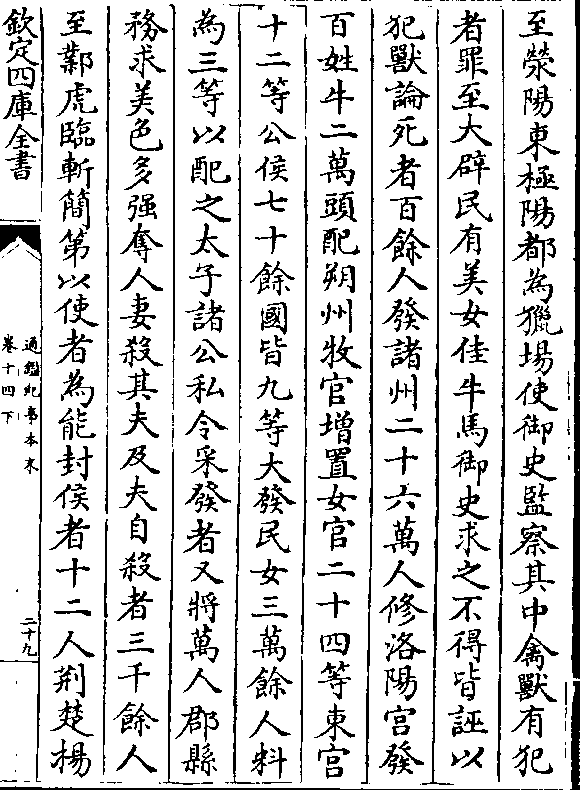 至滎陽東極陽都為獵場使御史監察其中禽獸有犯
者罪至大辟民有美女佳牛馬御史求之不得皆誣以
犯獸論死者百餘人發諸州二十六萬人修洛陽宮發
百姓牛二萬頭配朔州牧官增置女官二十四等東宮
十二等公侯七十餘國皆九等大發民女三萬餘人料
為三等以配之太子諸公私令采發者又將萬人郡縣
務求美色多强奪人妻殺其夫及夫自殺者三千餘人
至鄴虎臨軒簡第以使者為能封侯者十二人荆楚楊
欽定四庫全書
通鑑紀事本末
卷十四下
二十九